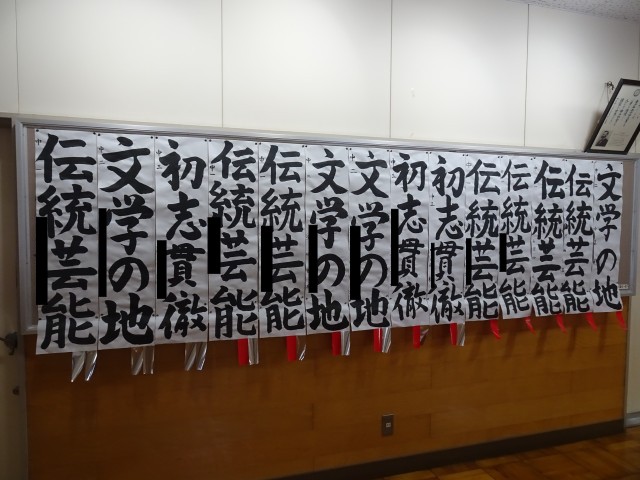 文学の地
伝統芸能
伝統芸能
伝統芸能
伝統芸能
初志貫徹
初志貫徹
文学の地
文学の地
伝統芸能
伝統芸能
初志貫徹
文学の地
伝統芸能